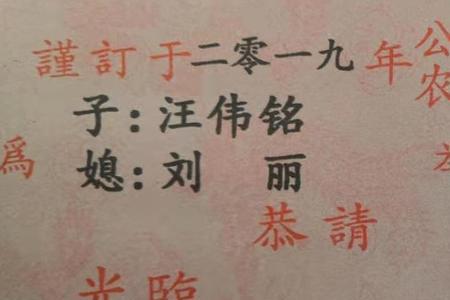 謹訂于二零一九年公
农
子：汪伟铭
為
媳：刘 丽
恭請
光臨